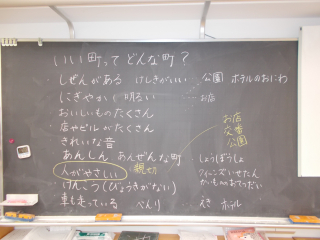 いい町ってどんな町？
しぜんがある けしきがいい 公園 ホテルのおにわ
にぎやか 明るい お店
おいしいものたくさん
店やビルがたくさん
お店
交番
公園
きれいな音
あんしん あんぜんな町
しょうぼうしょ
人がやさしい 親切
クイーンズいせたん
かいものおてつだい
けんこう(びょうきがない)
車も走っている べんり えき ホテル